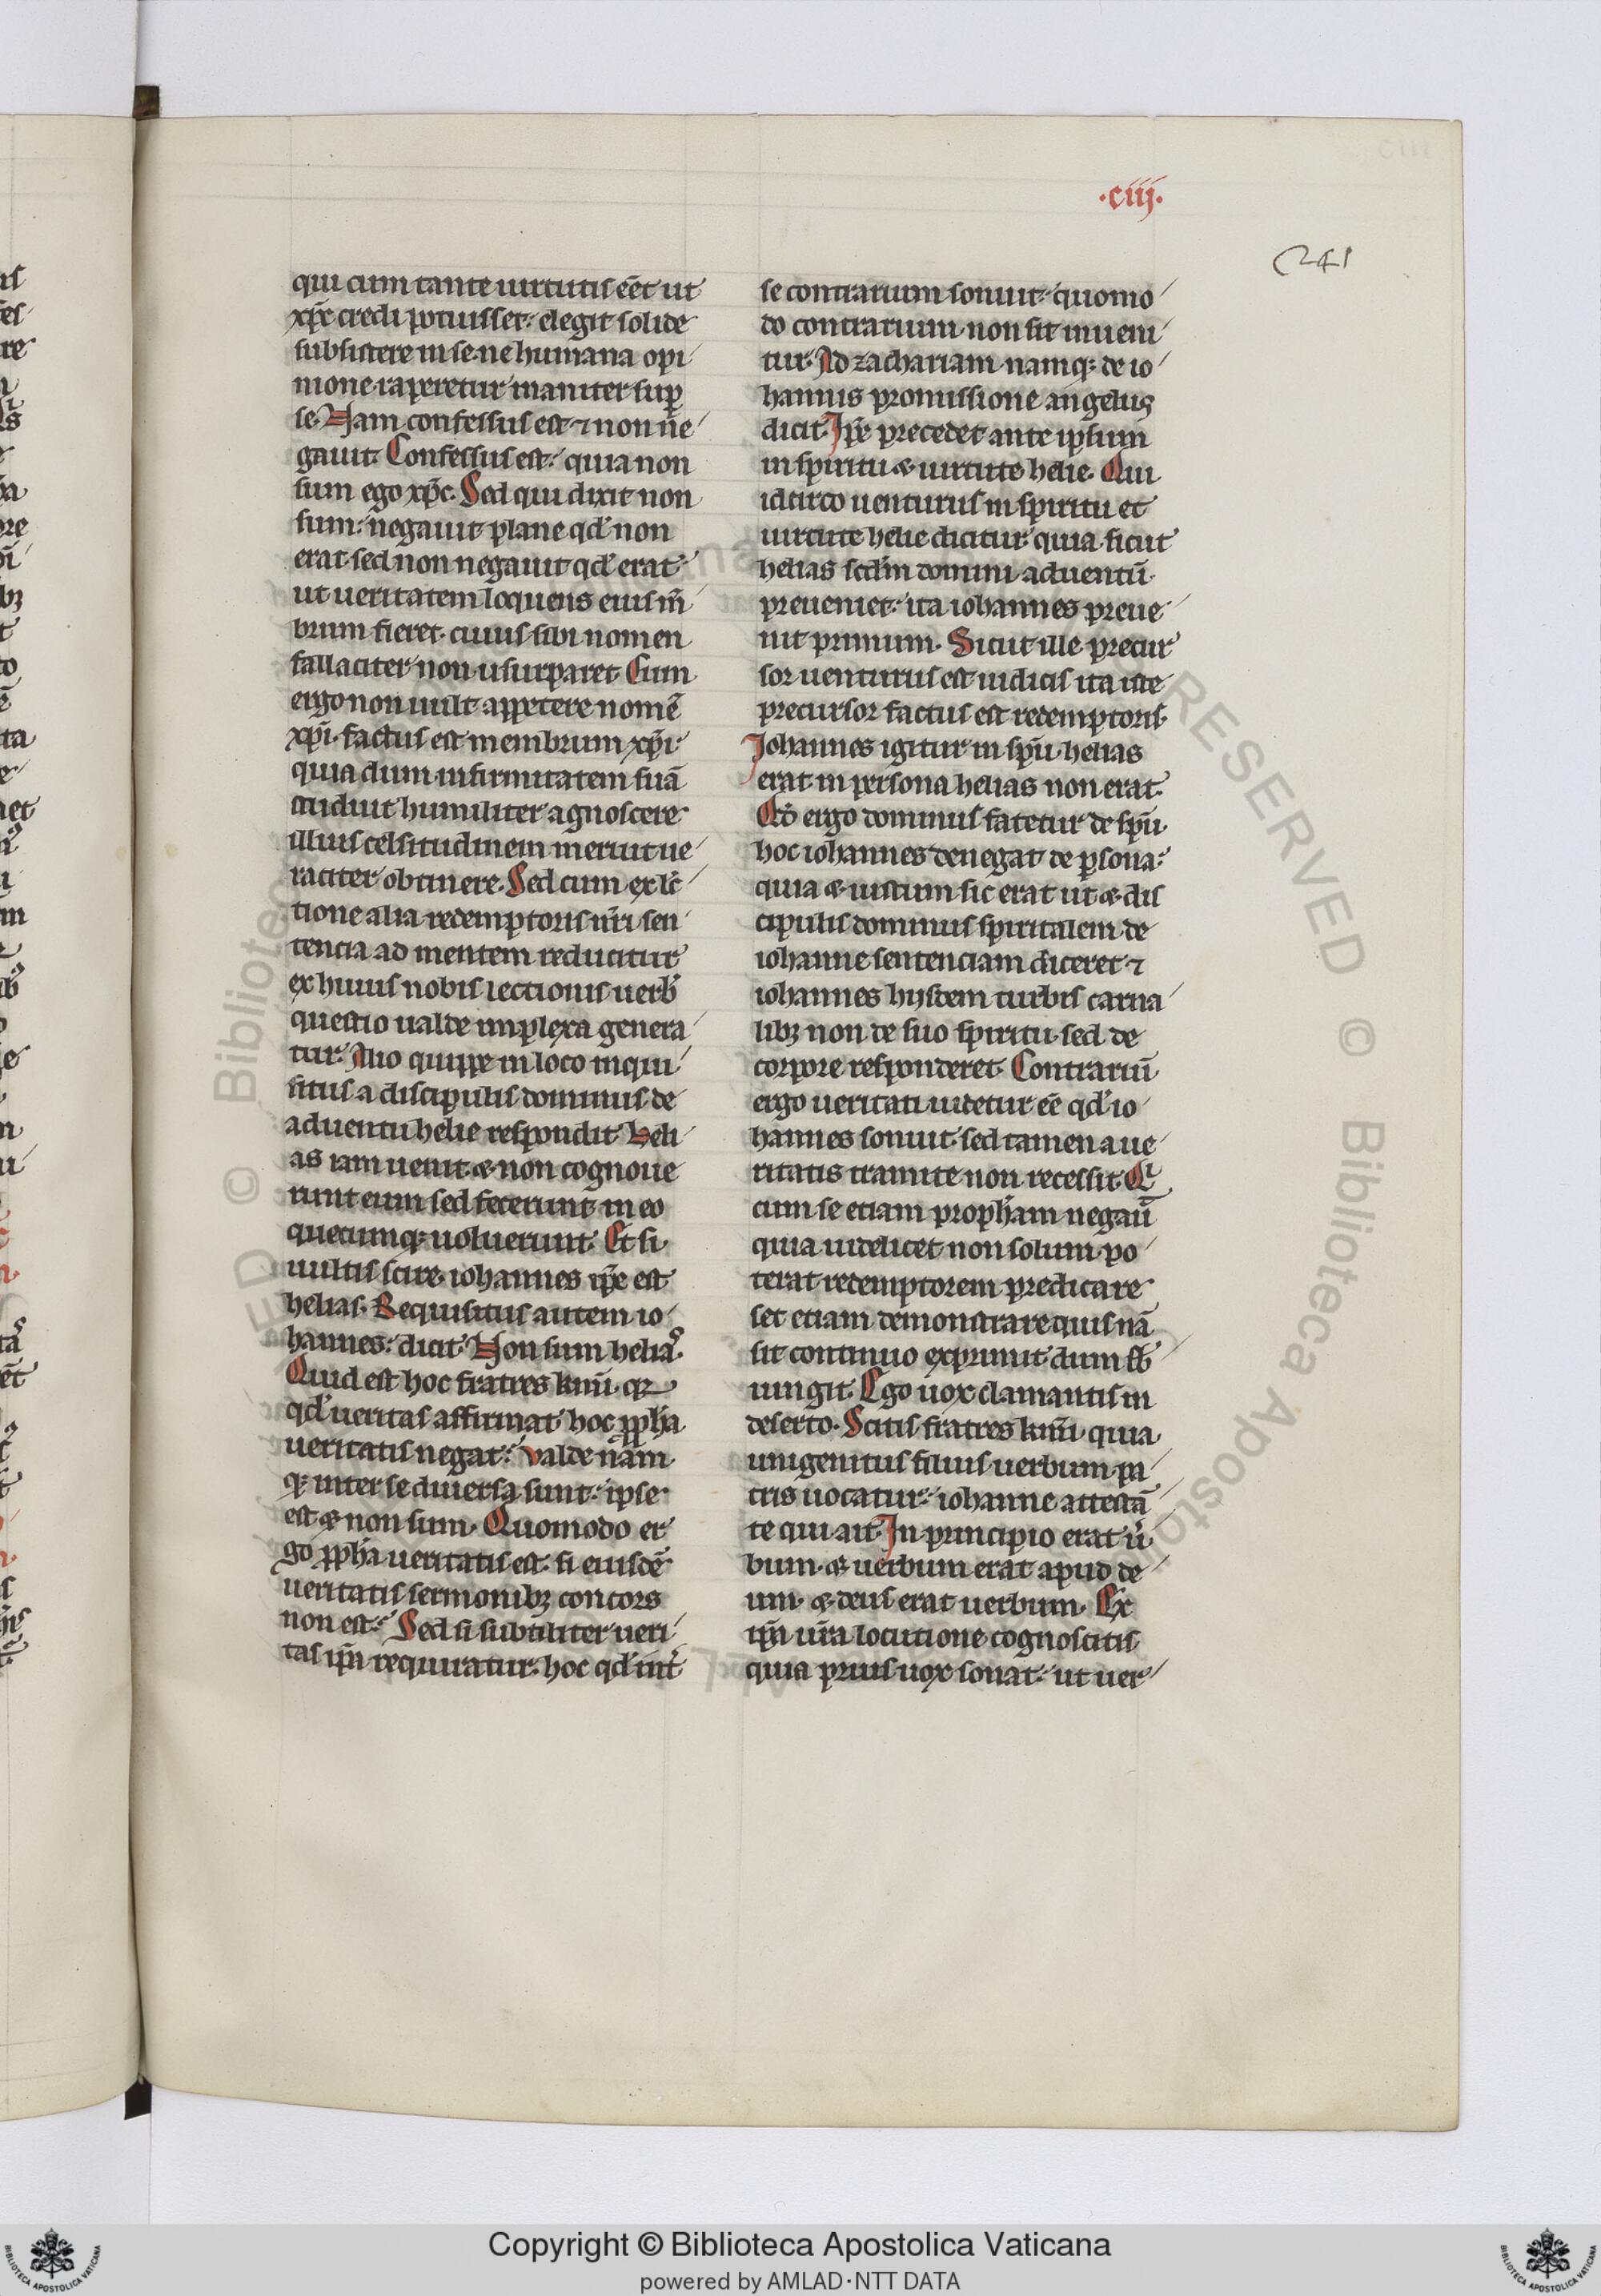 ·ciij·
241
qui cum tante uirtutis eēt ut
xp̄c credi potuisset: elegit solide
subsistere in se ne humana opi
nione raperetur inaniter sup̄
se. Nam confessus est ⁊ non ne
gauit. Confessus est: quia non
sum ego xp̄c. Sed qui dixit non
sum: negauit plane qd̓ non
erat. sed non negauit qd̓ erat.
ut ueritatem loquens eius m̄
brum fieret. cuius sibi nomen
fallaciter non usurparet. Cum
ergo non uult appetere nomē
xp̄i. factus est membrum xp̄i.
quia dum infirmitatem suā
studuit humiliter agnoscere
illius celsitudinem meruit ue
raciter obtinere. Sed cum ex lc̄
tione alia redemptoris nr̄i sen
tencia ad mentem reducitur
ex huius nobis lectionis uerb̓
questio ualde implexa genera
tur. Alio quippe in loco inqui
situs a discipulis dominus de
aduentu helie respondit. Heli
as iam uenit. & non cognoue
runt eum sed fecerunt in eo
quecumq; uoluerunt. Et si
uultis scire iohannes ip̄e est
helias. Requisitus autem io
hannes: dicit. Non sum helia᷒.
Quid est hoc fratres kmī. qꝛ
qd̓ ueritas affirmat hoc ꝓph̄a
ueritatis negat? Valde nam
q; inter se diuersa sunt: ipse
est. & non sum. Quomodo er
go ꝓph̄a ueritatis est. si eiusdē
ueritatis sermonibꝫ concors
non est? Sed si subtiliter ueri
tas ip̄a requiratur. hoc qd̓ int̓
se contrarium sonuit: quomo
do contrarium non sit inueni
tur. Ad zachariam namq; de io
hannis promissione angelus
dicit. Ip̄e precedet ante ipsum
in spiritu & uirtute helie. Qui
idcirco uenturus in spiritu et
uirtute helie dicitur. quia sicut
helias scd̄m domini aduentū
preueniet: ita iohannes preue
nit primum. Sicut ille precur
sor uenturus est iudicis ita iste
precursor factus est redemptoris.
Iohannes igitur in sp̄u helias
erat. in persona helias non erat.
Qd̓ ergo dominus fatetur de sp̄u.
hoc iohannes denegat de ꝑsona:
quia & iustum sic erat ut & dis
cipulis dominus spiritalem de
iohanne sentenciam diceret ⁊
iohannes hijsdem turbis carna
libꝫ non de suo spiritu. sed de
corpore responderet. Contrariū
ergo ueritati uidetur eē qd̓ io
hannes sonuit. sed tamen a ue
ritatis tramite non recessit. Qi
cum se etiam proph̄am negaū
quia uidelicet non solum po
terat redemptorem predicare
set etiam demonstrare quis nā
sit continuo exprimit dum sb̓
iungit. Ego uox clamantis in
deserto. Scitis fratres kmī. quia
unigenitus filius uerbum pa
tris uocatur: iohanne attestā
te qui ait. In principio erat u̓
bum. & uerbum erat apud de
um. & deus erat uerbum. Ex
ip̄a ur̄a locutione cognoscitis
quia prius uox sonat: ut uer
Copyright © Biblioteca Apostolica Vaticana
powered by AMLAD·NTT DATA